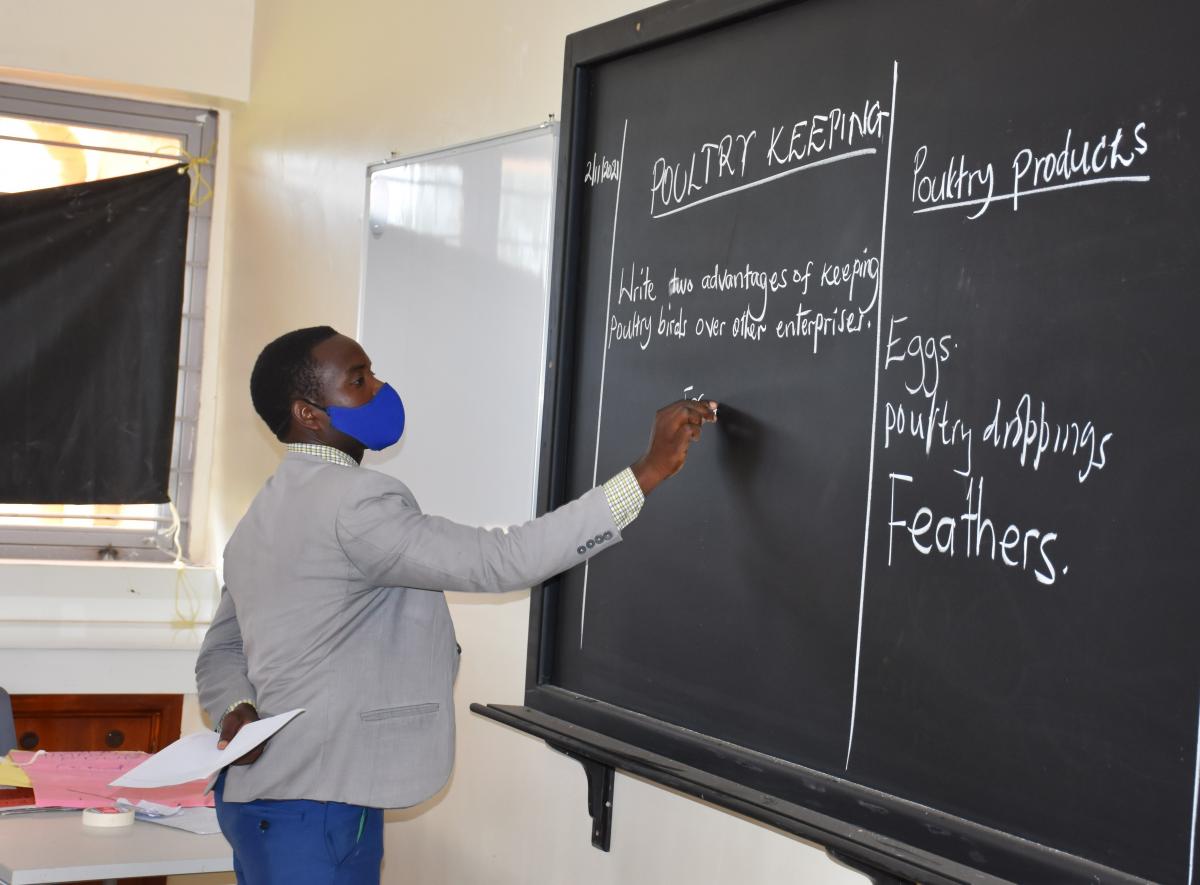 2/11/2021
POULTRY KEEPING
Write two advantages of keeping
Poultry birds over other enterprises.
Poultry products
Eggs.
poultry droppings
Feathers.